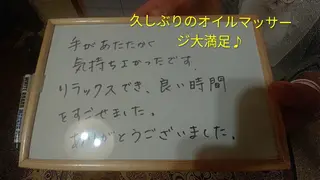 久しぶりのオイルマッサー
ジ大満足♪
手があたたかく
気持ちよかったです。
リラックスでき、良い時間
をすごせました。
ありがとうございました。